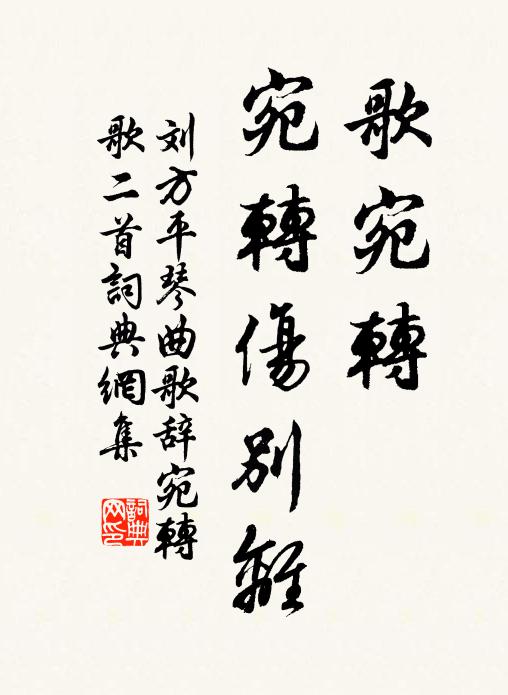 歌宛轉
宛轉傷別離
刘方平琴曲歌辞宛轉
歌二首詞典網集
詞典
网印